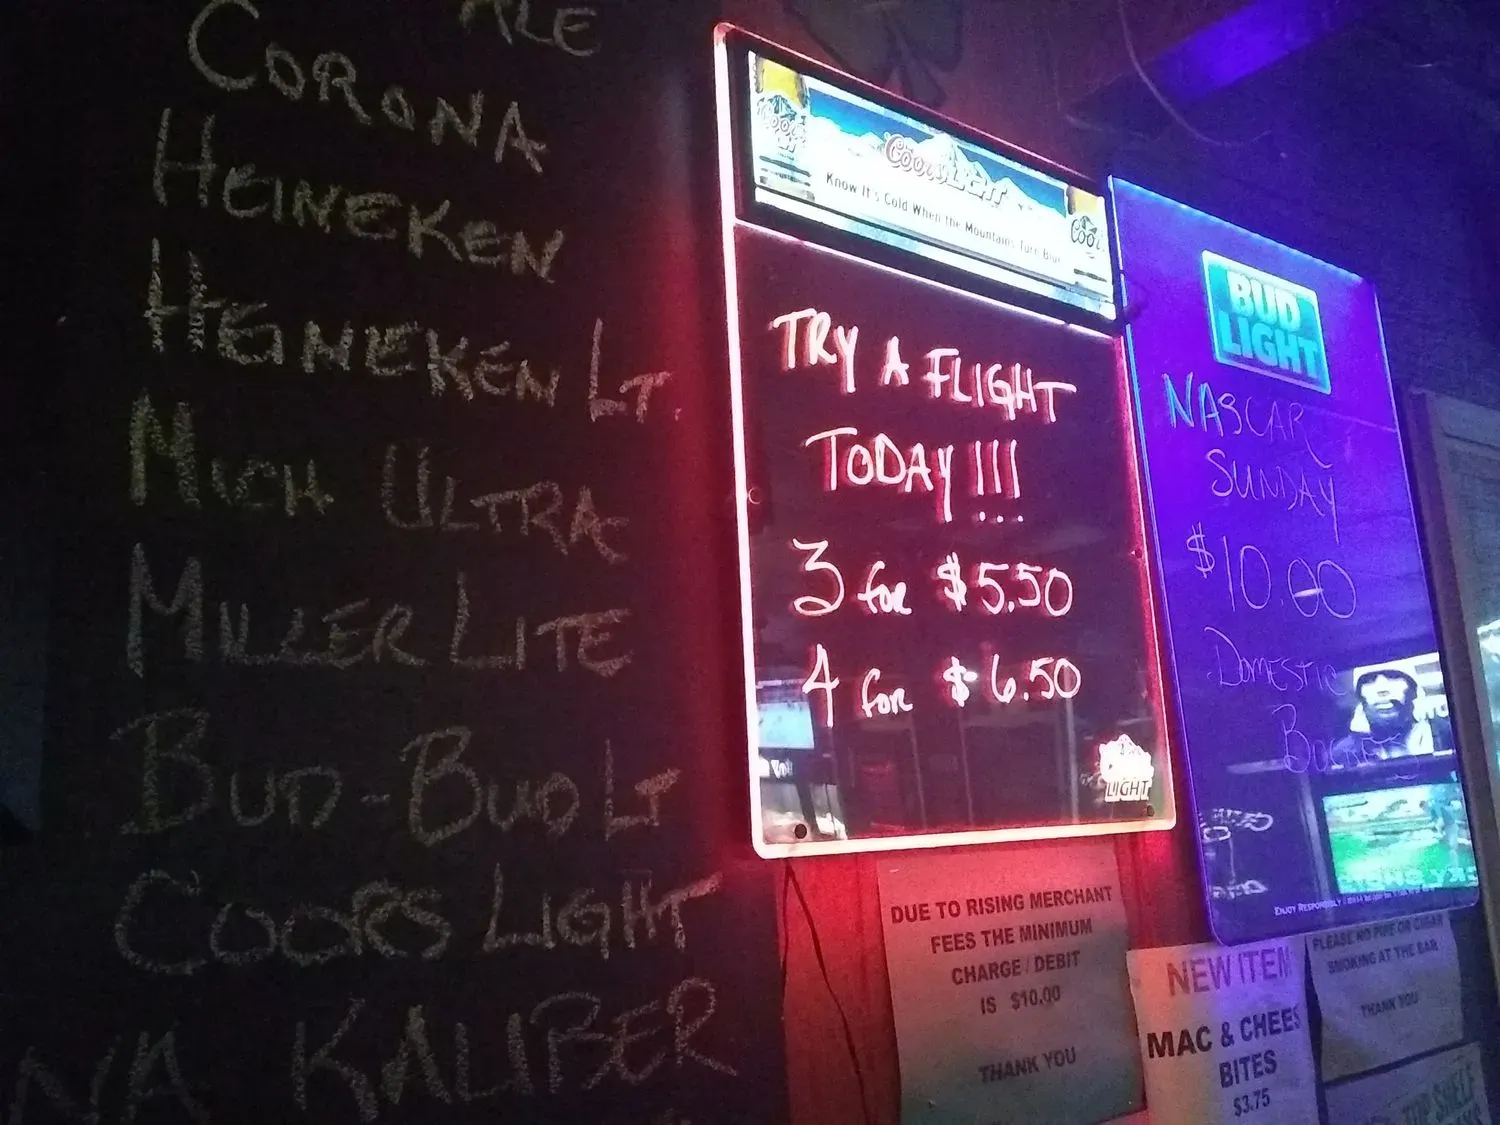 ALE
CORONA
HEINEKEN
HEINEKEN LT.
MICH ULTRA
MILLER LITE
BUD-BUD LT
COORS LIGHT
NA KALIBER
COORS LIGHT
Know It's Cold When the Mountains Turn Blue
TRY A FLIGHT
TODAY!!!
3 for $5.50
4 for $6.50
LIGHT
BUD
LIGHT
NASCAR
SUNDAY
$10.00
DOMESTIC
ENJOY RESPONSIBLY
DUE TO RISING MERCHANT
FEES THE MINIMUM
CHARGE/DEBIT
IS $10.00
THANK YOU
NEW ITEM
MAC & CHEES
BITES
$3.75
PLEASE NO PIPE OR CIGAR
SMOKING AT THE BAR
THANK YOU
TOP SHELF